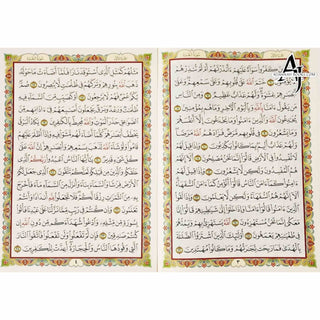 إِنَّ الَّذِينَ كَفَرُوا سَوَاءٌ عَلَيْهِمْ ءَأَنذَرْتَهُمْ أَمْ لَمْ تُنذِرْهُمْ
لَا يُؤْمِنُونَ خَتَمَ اللَّهُ عَلَىٰ قُلُوبِهِمْ وَعَلَىٰ سَمْعِهِمْ وَعَلَىٰ
أَبْصَارِهِمْ غِشَاوَةٌ وَلَهُمْ عَذَابٌ عَظِيمٌ وَمِنَ النَّاسِ مَن
يَقُولُ ءَامَنَّا بِاللَّهِ وَبِالْيَوْمِ الْآخِرِ وَمَا هُم بِمُؤْمِنِينَ
يُخَادِعُونَ اللَّهَ وَالَّذِينَ ءَامَنُوا وَمَا يَخْدَعُونَ إِلَّا أَنفُسَهُمْ
وَمَا يَشْعُرُونَ فِي قُلُوبِهِم مَّرَضٌ فَزَادَهُمُ اللَّهُ مَرَضًا
وَلَهُمْ عَذَابٌ أَلِيمٌ بِمَا كَانُوا يَكْذِبُونَ وَإِذَا قِيلَ لَهُمْ
لَا تُفْسِدُوا فِي الْأَرْضِ قَالُوا إِنَّمَا نَحْنُ مُصْلِحُونَ
أَلَا إِنَّهُمْ هُمُ الْمُفْسِدُونَ وَلَٰكِن لَّا يَشْعُرُونَ وَإِذَا قِيلَ لَهُمْ
ءَامِنُوا كَمَا ءَامَنَ النَّاسُ قَالُوا أَنُؤْمِنُ كَمَا ءَامَنَ السُّفَهَاءُ
أَلَا إِنَّهُمْ هُمُ السُّفَهَاءُ وَلَٰكِن لَّا يَعْلَمُونَ وَإِذَا لَقُوا الَّذِينَ
ءَامَنُوا قَالُوا ءَامَنَّا وَإِذَا خَلَوْا إِلَىٰ شَيَاطِينِهِمْ قَالُوا إِنَّا مَعَكُمْ
إِنَّمَا نَحْنُ مُسْتَهْزِءُونَ اللَّهُ يَسْتَهْزِئُ بِهِمْ وَيَمُدُّهُمْ
فِي طُغْيَانِهِمْ يَعْمَهُونَ أُولَٰئِكَ الَّذِينَ اشْتَرَوُا الضَّلَالَةَ
بِالْهُدَىٰ فَمَا رَبِحَت تِّجَارَتُهُمْ وَمَا كَانُوا مُهْتَدِينَ
٣
مَثَلُهُمْ كَمَثَلِ الَّذِي اسْتَوْقَدَ نَارًا فَلَمَّا أَضَاءَتْ مَا حَوْلَهُ
ذَهَبَ اللَّهُ بِنُورِهِمْ وَتَرَكَهُمْ فِي ظُلُمَاتٍ لَّا يُبْصِرُونَ صُمٌّ
بُكْمٌ عُمْيٌ فَهُمْ لَا يَرْجِعُونَ أَوْ كَصَيِّبٍ مِّنَ السَّمَاءِ فِيهِ
ظُلُمَاتٌ وَرَعْدٌ وَبَرْقٌ يَجْعَلُونَ أَصَابِعَهُمْ فِي ءَاذَانِهِم مِّنَ
الصَّوَاعِقِ حَذَرَ الْمَوْتِ وَاللَّهُ مُحِيطٌ بِالْكَافِرِينَ يَكَادُ الْبَرْقُ
يَخْطَفُ أَبْصَارَهُمْ كُلَّمَا أَضَاءَ لَهُم مَّشَوْا فِيهِ وَإِذَا أَظْلَمَ عَلَيْهِمْ
قَامُوا وَلَوْ شَاءَ اللَّهُ لَذَهَبَ بِسَمْعِهِمْ وَأَبْصَارِهِمْ إِنَّ اللَّهَ عَلَىٰ
كُلِّ شَيْءٍ قَدِيرٌ يَا أَيُّهَا النَّاسُ اعْبُدُوا رَبَّكُمُ الَّذِي خَلَقَكُمْ
وَالَّذِينَ مِن قَبْلِكُمْ لَعَلَّكُمْ تَتَّقُونَ الَّذِي جَعَلَ لَكُمُ
الْأَرْضَ فِرَاشًا وَالسَّمَاءَ بِنَاءً وَأَنزَلَ مِنَ السَّمَاءِ مَاءً فَأَخْرَجَ
بِهِ مِنَ الثَّمَرَاتِ رِزْقًا لَّكُمْ فَلَا تَجْعَلُوا لِلَّهِ أَندَادًا وَأَنتُمْ
تَعْلَمُونَ وَإِن كُنتُمْ فِي رَيْبٍ مِّمَّا نَزَّلْنَا عَلَىٰ عَبْدِنَا فَأْتُوا
بِسُورَةٍ مِّن مِّثْلِهِ وَادْعُوا شُهَدَاءَكُم مِّن دُونِ اللَّهِ إِن
كُنتُمْ صَادِقِينَ فَإِن لَّمْ تَفْعَلُوا وَلَن تَفْعَلُوا فَاتَّقُوا النَّارَ
الَّتِي وَقُودُهَا النَّاسُ وَالْحِجَارَةُ أُعِدَّتْ لِلْكَافِرِينَ
٤